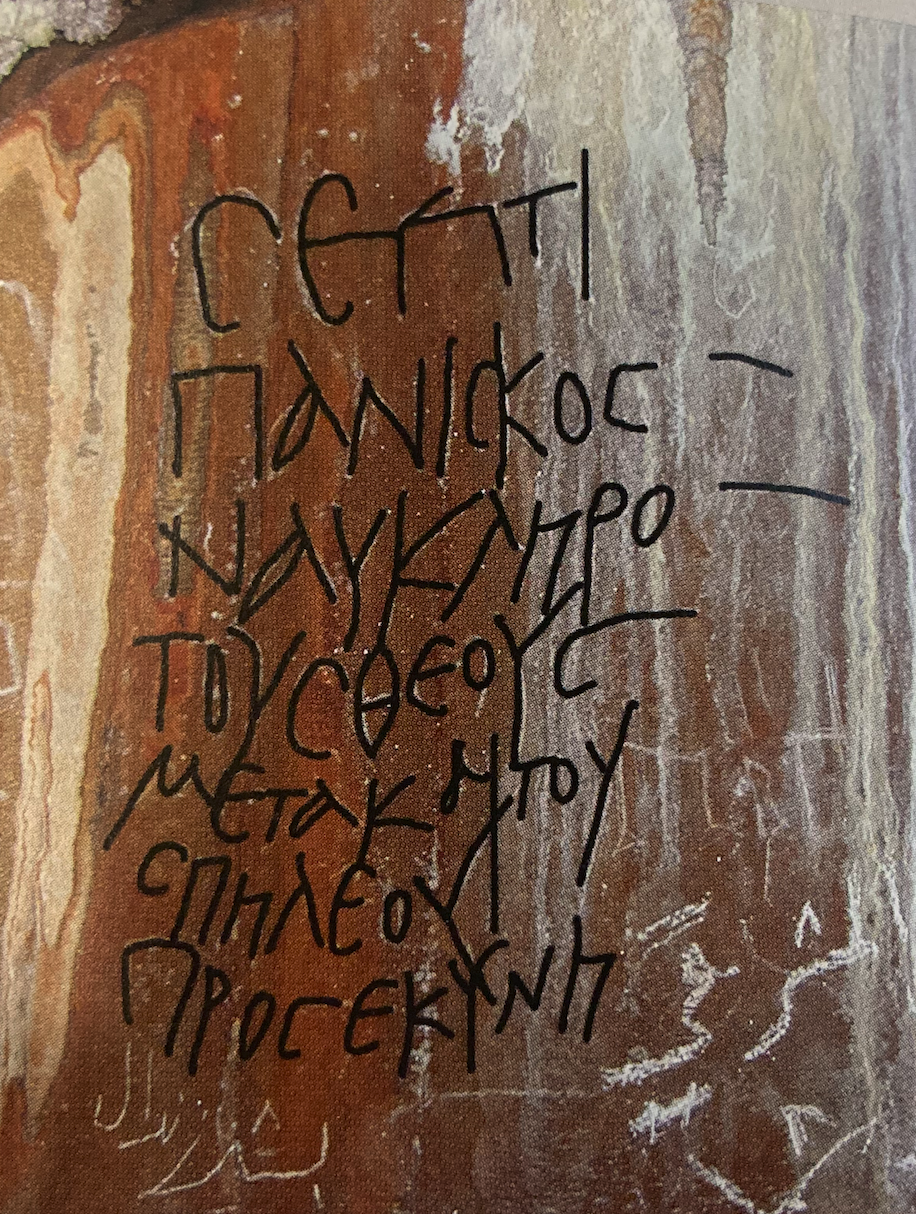 ϹΕΠΤΙ
ΠΑΝΙϹΚΟϹ
ΝΑΥΚΛΗΡΟ
ΤΟΥϹΘΕΟΥϹ
ΜΕΤΑΚΑΙΤΟΥ
ϹΠΗΛΕΟΥ
ΠΡΟϹΕΚΥΝΗ